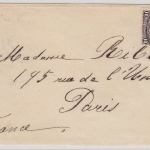 Madame Rib
195 rue de l'Un
Paris
France